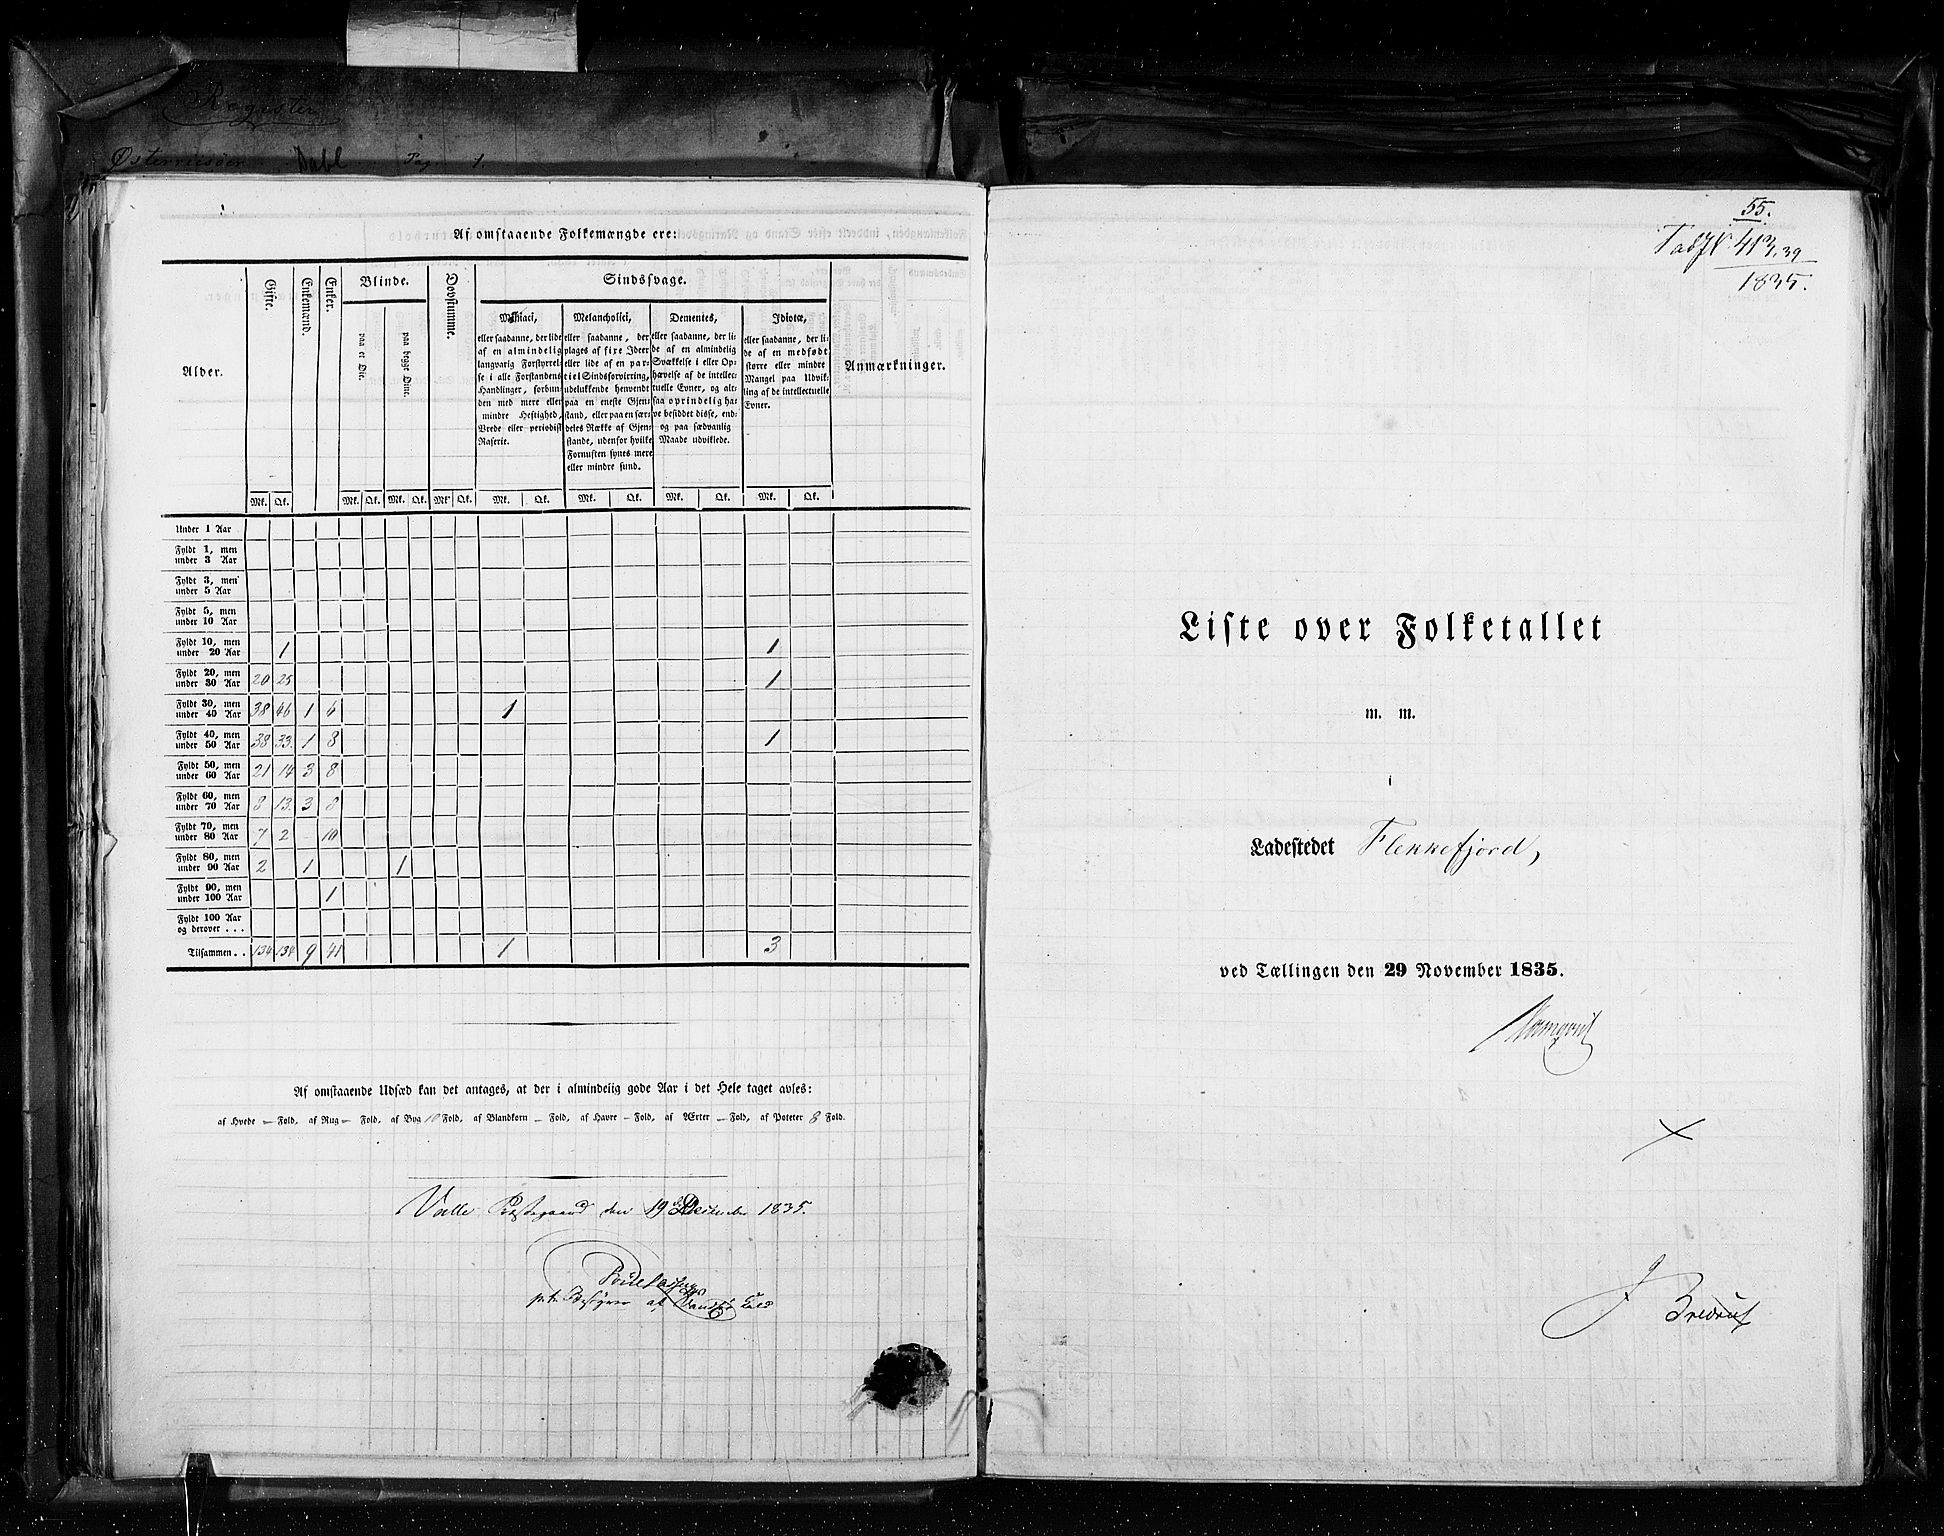 Register
Østerriisöer Dahl Pag. 1.
Af omstaaende Folkemængde ere:
Alder.
Gifte.
Enkemænd.
Enker.
Blinde.
paa et Øie.
paa begge Øine.
Døvstumme.
Sindssvage.
Maniaci,
eller saadanne, der lide
af en almindelig
langvarig Forstyrrel-
se i alle Forstandens
Handlinger, forbun-
den med mere eller
mindre Heftighed,
Vrede eller periodisk
Raserie.
Melancholici,
eller saadanne, der
plages af fixe Ideer
eller lide af en par-
tiel Sindsforvirring,
udelukkende henvendt
paa en eneste Gjen-
stand, eller paa en sær-
deles Række af Gjen-
stande, udenfor hvilke
Fornuften synes mere
eller mindre sund.
Dementes,
eller saadanne, der li-
de af en almindelig
Svækkelse i eller Op-
hævelse af de intellec-
tuelle Evner, og alt-
saa oprindelig ha-
ve besiddet disse, end-
og paa sædvanlig
Maade udviklede.
Idiotæ,
eller saadanne, der li-
de af en medfødt
større eller mindre
Mangel paa Udvik-
ling af de intellectuelle
Evner.
Anmærkninger.
Mk. Qk. Mk. Qk. Mk. Qk. Mk. Qk. Mk. Qk. Mk. Qk. Mk. Qk. Mk. Qk.
Under 1 Aar
Fyldt 1, men
under 3 Aar
Fyldt 3, men
under 5 Aar
Fyldt 5, men
under 10 Aar
Fyldt 10, men
under 20 Aar 1 1
Fyldt 20, men
under 30 Aar 20 25 1
Fyldt 30, men
under 40 Aar 38 46 1 6 1
Fyldt 40, men
under 50 Aar 38 33. 1 8 1
Fyldt 50, men
under 60 Aar 21 14 3 8
Fyldt 60, men
under 70 Aar 8 13. 3 8
Fyldt 70, men
under 80 Aar 7 2 10
Fyldt 80, men
under 90 Aar 2 1 1
Fyldt 90, men
under 100 Aar 1
Fyldt 100 Aar
og derover . . .
Tilsammen . . 134 134 9 41 1 3
Af omstaaende Udsæd kan det antages, at der i almindelig gode Aar i det Hele taget avles:
af Hvede – Fold, af Rug – Fold, af Byg 10 Fold, af Blandkorn – Fold, af Havre – Fold, af Ærter – Fold, af Poteter 8 Fold.
Valle Præstegaard den 19 December 1835.
55.
Tab JN. 413.39
1835.
Liste over Folketallet
m. m.
i
Ladestedet Flekkefjord,
ved Tællingen den 29 November 1835.